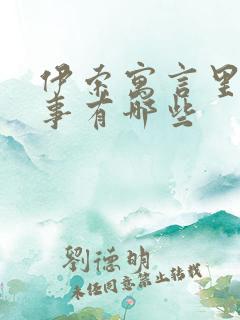 伊索寓言里
事有哪些
劉德明
未经同意禁止转载